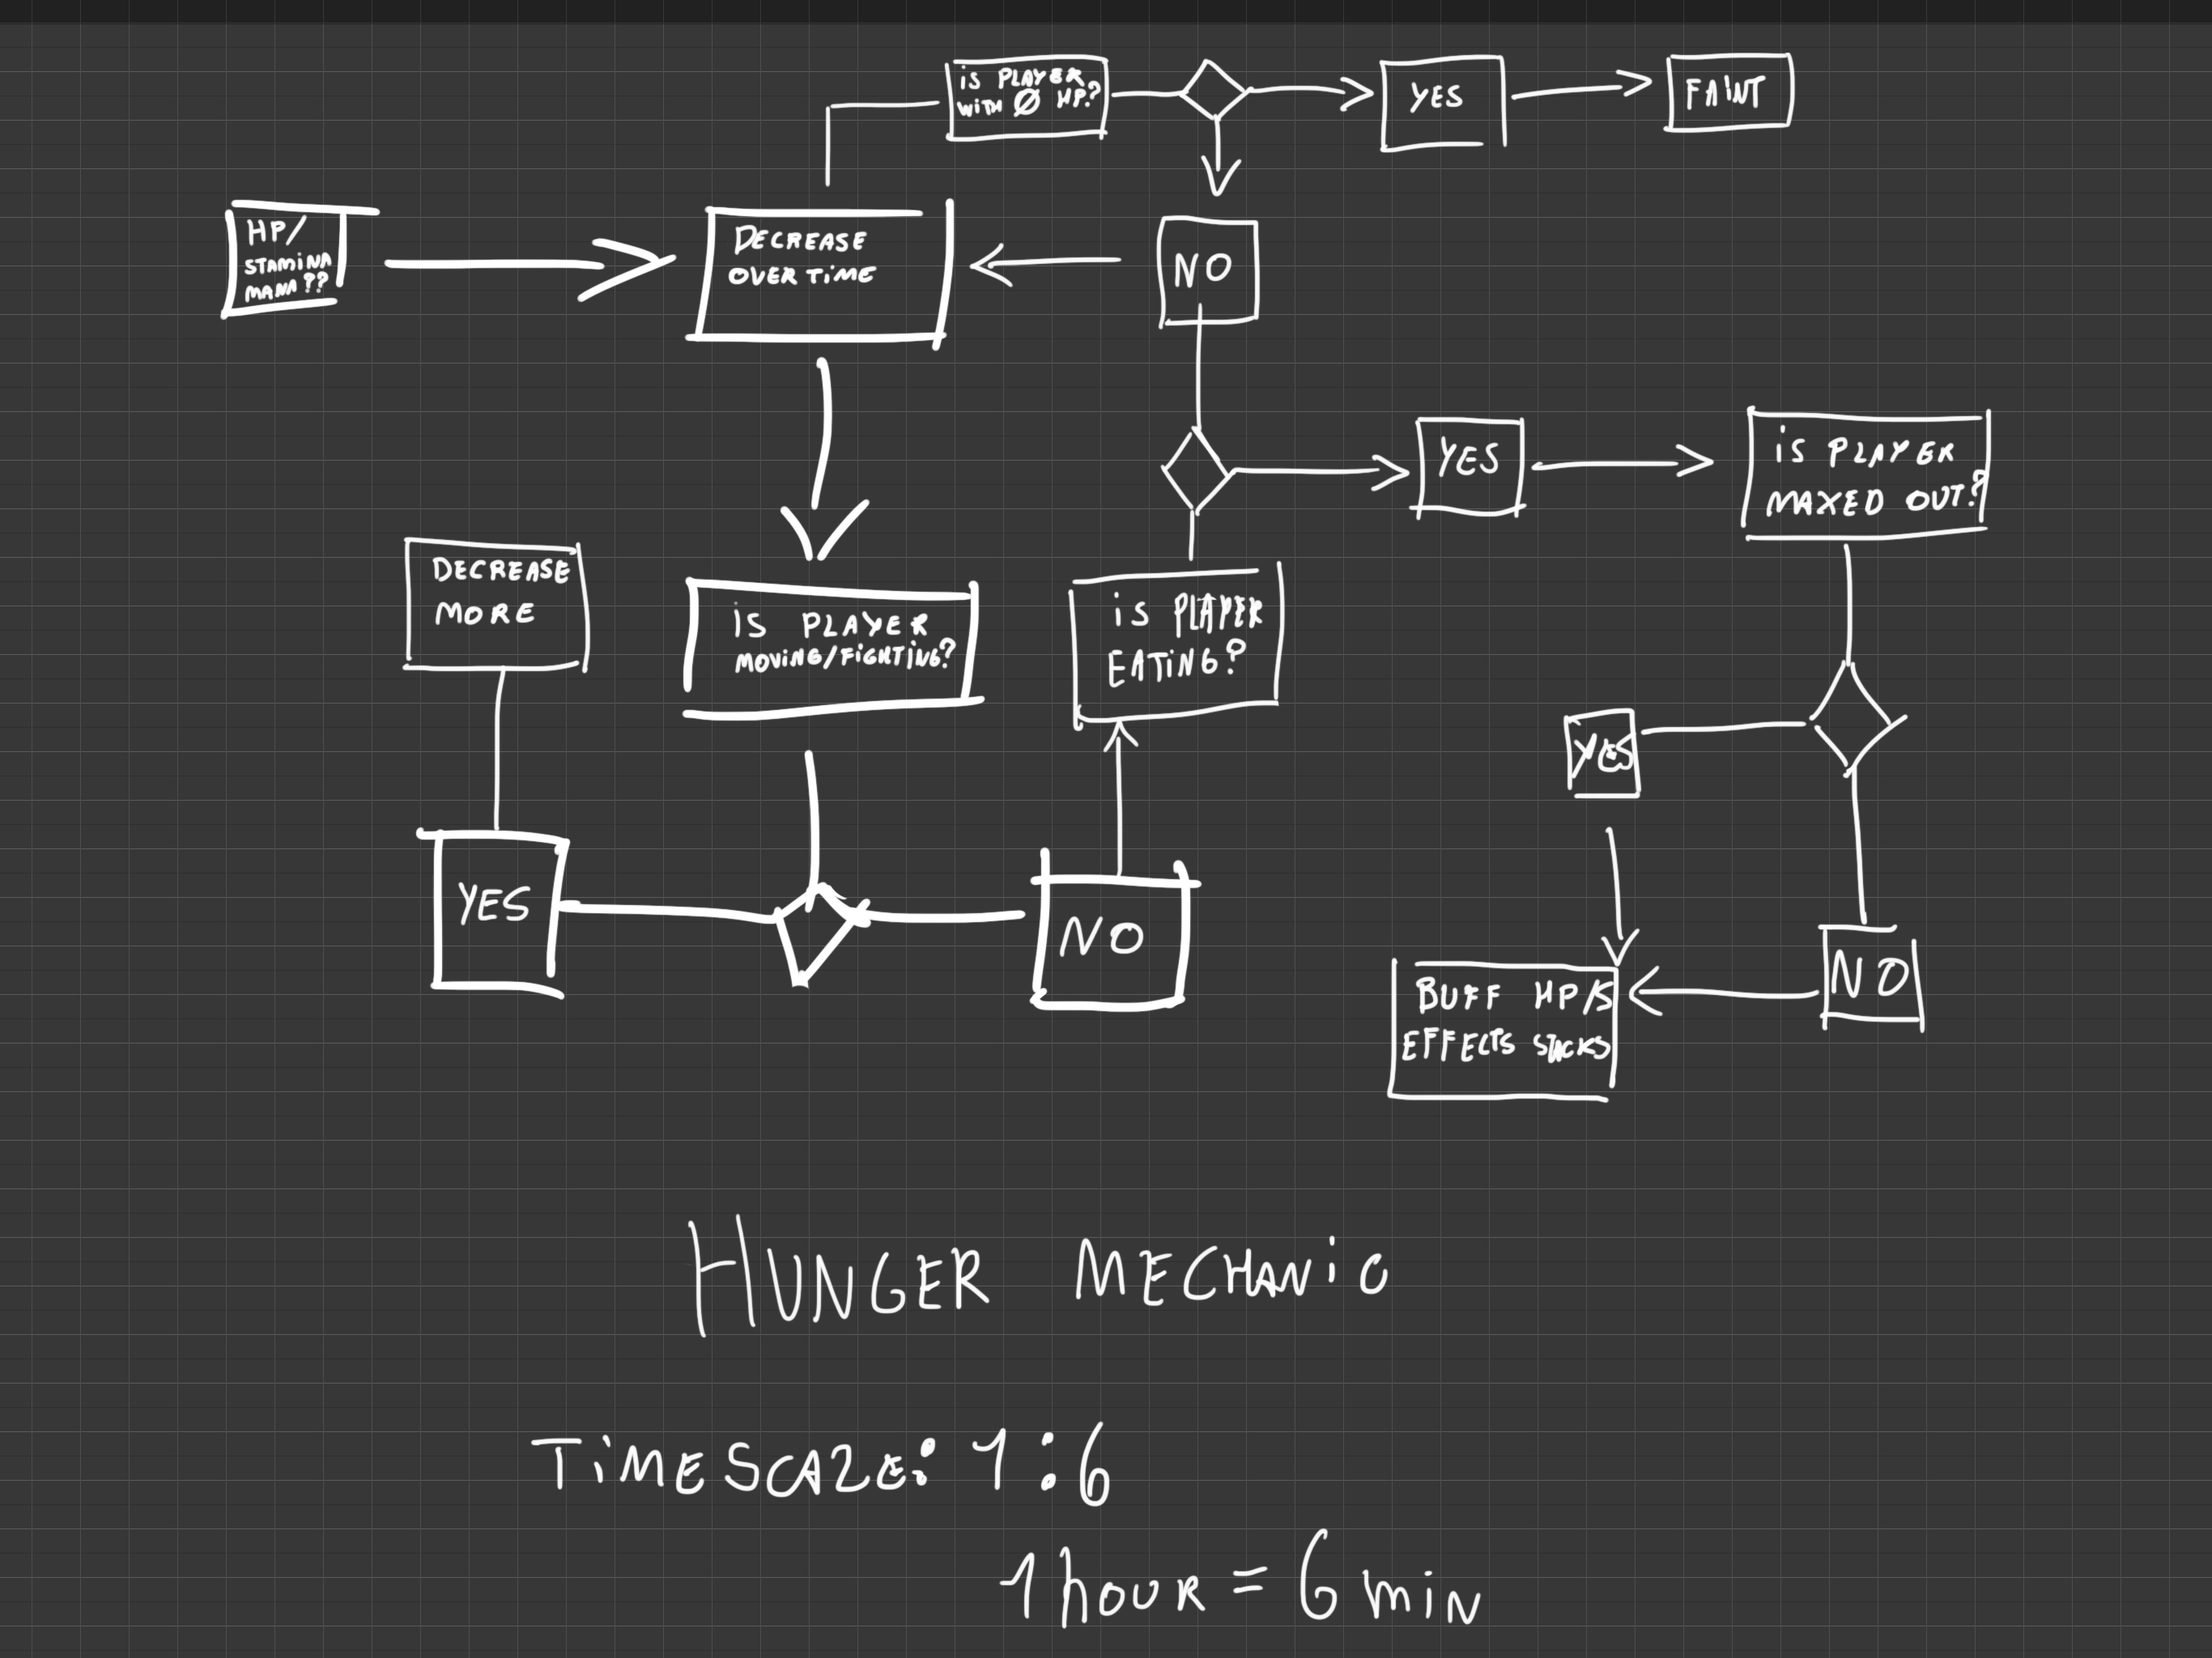 iS PLAYER
WiTH Ø HP.?
YES
FAiNT
HP/
STAMiNA
MANA??
DECREASE
OVER TiME
NO
YES
iS PLAYER
MAXED OUT?
DECREASE
MORE
iS PLAYER
MOViNG/FiGHTiNG?
iS PLAYER
EATiNG?
YES
YES
NO
NO
BUFF HP/S
EFFECTS STACKS
HUNGER MECHANiC
TiMESCALE: 1:6
1 hOUR = 6 min